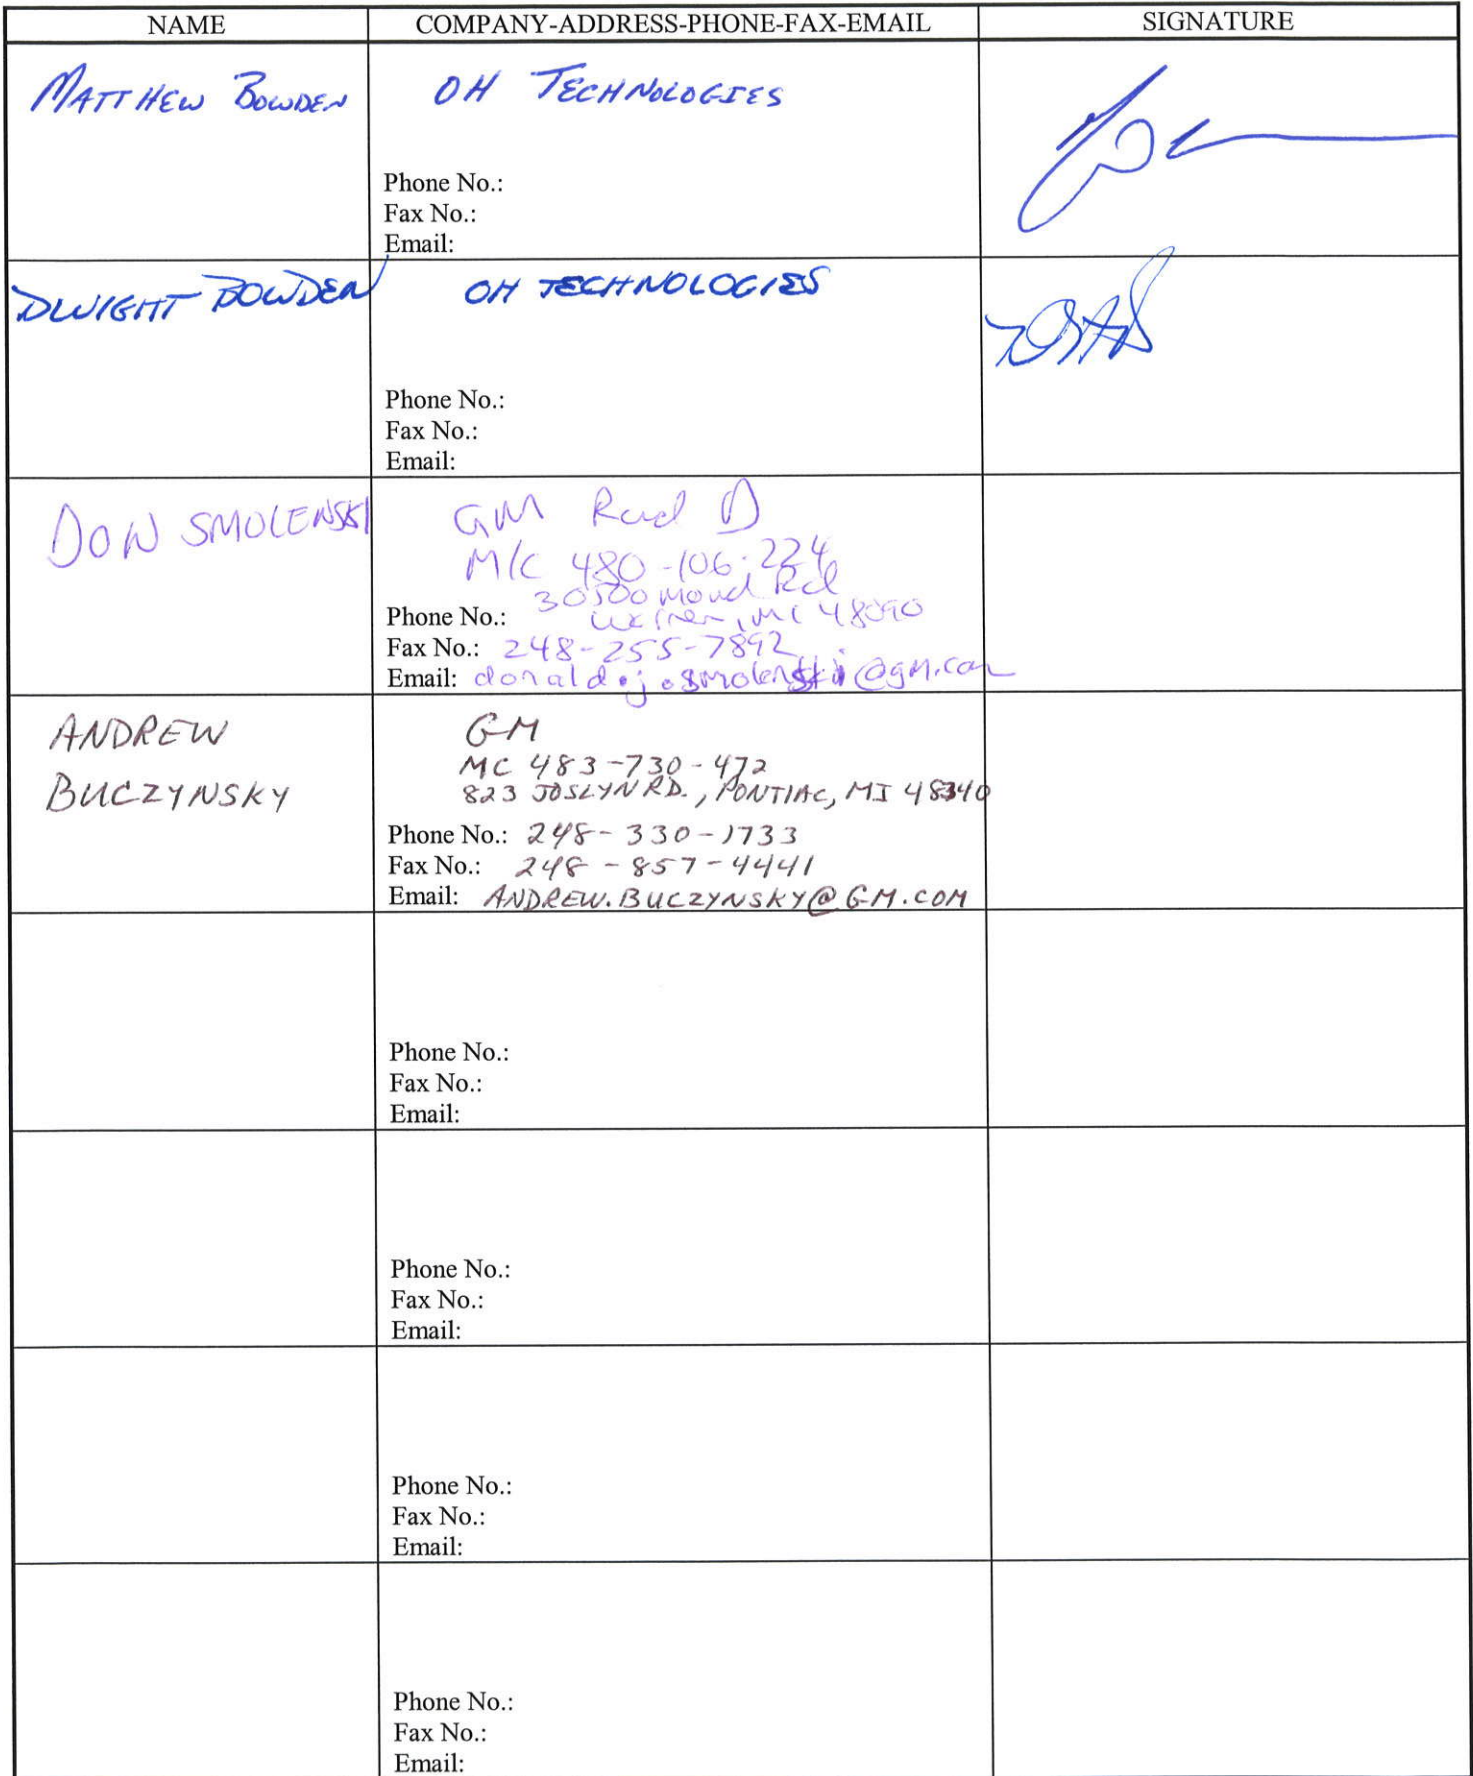 NAME COMPANY-ADDRESS-PHONE-FAX-EMAIL SIGNATURE
MATTHEW BOWDEN OH TECHNOLOGIES
Phone No.:
Fax No.:
Email:
DWIGHT BOWDEN OH TECHNOLOGIES
Phone No.:
Fax No.:
Email:
DON SMOLENSKI GM R and D
M/C 480-106-224
30500 Mound Rd
Warren, MI 48090
Phone No.:
Fax No.: 248-255-7892
Email: donald.j.smolenski@gm.com
ANDREW GM
BUCZYNSKY MC 483-730-472
823 JOSLYN RD., PONTIAC, MI 48340
Phone No.: 248-330-1733
Fax No.: 248-857-4441
Email: ANDREW.BUCZYNSKY@GM.COM
Phone No.:
Fax No.:
Email:
Phone No.:
Fax No.:
Email:
Phone No.:
Fax No.:
Email:
Phone No.:
Fax No.:
Email: